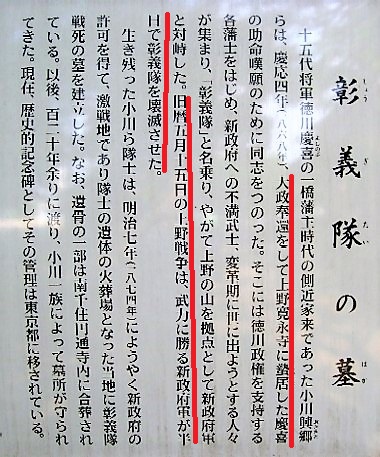 彰義隊の墓
たい
はか
十五代将軍徳川慶喜の一橋藩主時代の側近家来であった小川興郷
よしのぶ
おきさと
らは、慶応四年（一八六八年）、大政奉還をして上野寛永寺に蟄居した慶喜
の助命嘆願のために同志をつのった。そこには徳川政権を支持する
各藩士をはじめ、新政府への不満武士、変革期に世に出ようとする人々
が集まり、「彰義隊」と名乗り、やがて上野の山を拠点として新政府軍
と対峙した。旧暦五月十五日の上野戦争は、武力に勝る新政府軍が半
日で彰義隊を壊滅させた。
生き残った小川ら隊士は、明治七年（一八七四年）にようやく新政府の
許可を得て、激戦地であり隊士の遺体の火葬場となった当地に彰義隊
戦死の墓を建立した。なお、遺骨の一部は南千住円通寺内に合葬され
ている。以後、百二十年余りに渡り、小川一族によって墓所が守られ
てきた。現在、歴史的記念碑としてその管理は東京都に移されている。